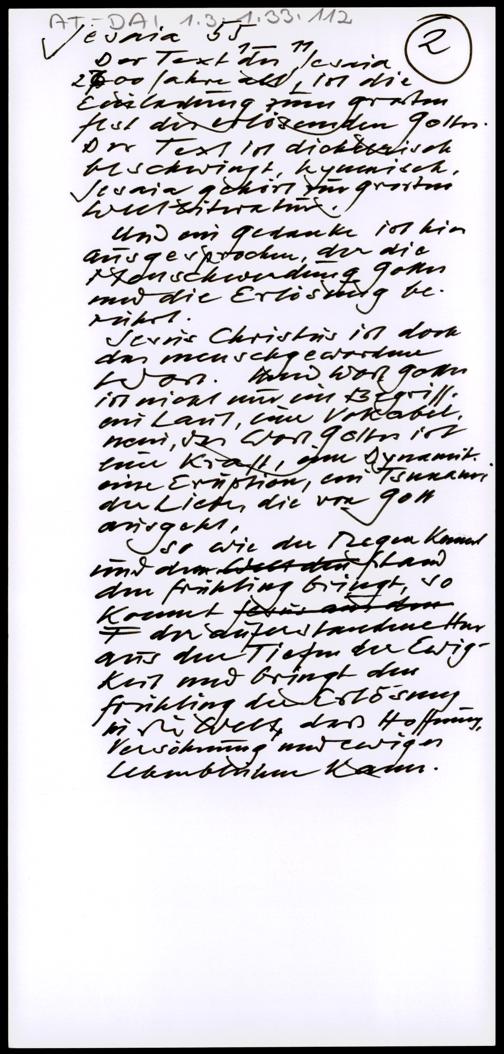 AT-DAI 1.3-1.33.112
2
Jesaia 55
Der Text des Jesaia
2700 Jahre alt, ist die
Einladung zum großen
fest des erlösenden Gottes.
Der Text ist dichterisch
beschwingt, hymnisch.
Jesaia gehört zur großen
Weltliteratur.
Und ein Gedanke ist hier
ausgesprochen, der die
Menschwerdung Gottes
und die Erlösung be-
rührt.
Jesus Christus ist doch
das menschgewordene
Wort. Und Wort Gottes
ist nicht nur ein Begriff.
ein Laut, eine Vokabel,
nein, das Wort Gottes ist
eine Kraft, eine Dynamik
eine Eruption, ein Tsunami
der Liebe, die von Gott
ausgeht.
So wie der Regen kommt
und dem Land
den frühling bringt, so
kommt
der auferstandene Herr
aus den Tiefen der Ewig-
keit und bringt den
frühling der Erlösung
in die Welt, daß Hoffnung,
Versöhnung und ewiges
Leben blühen kann.